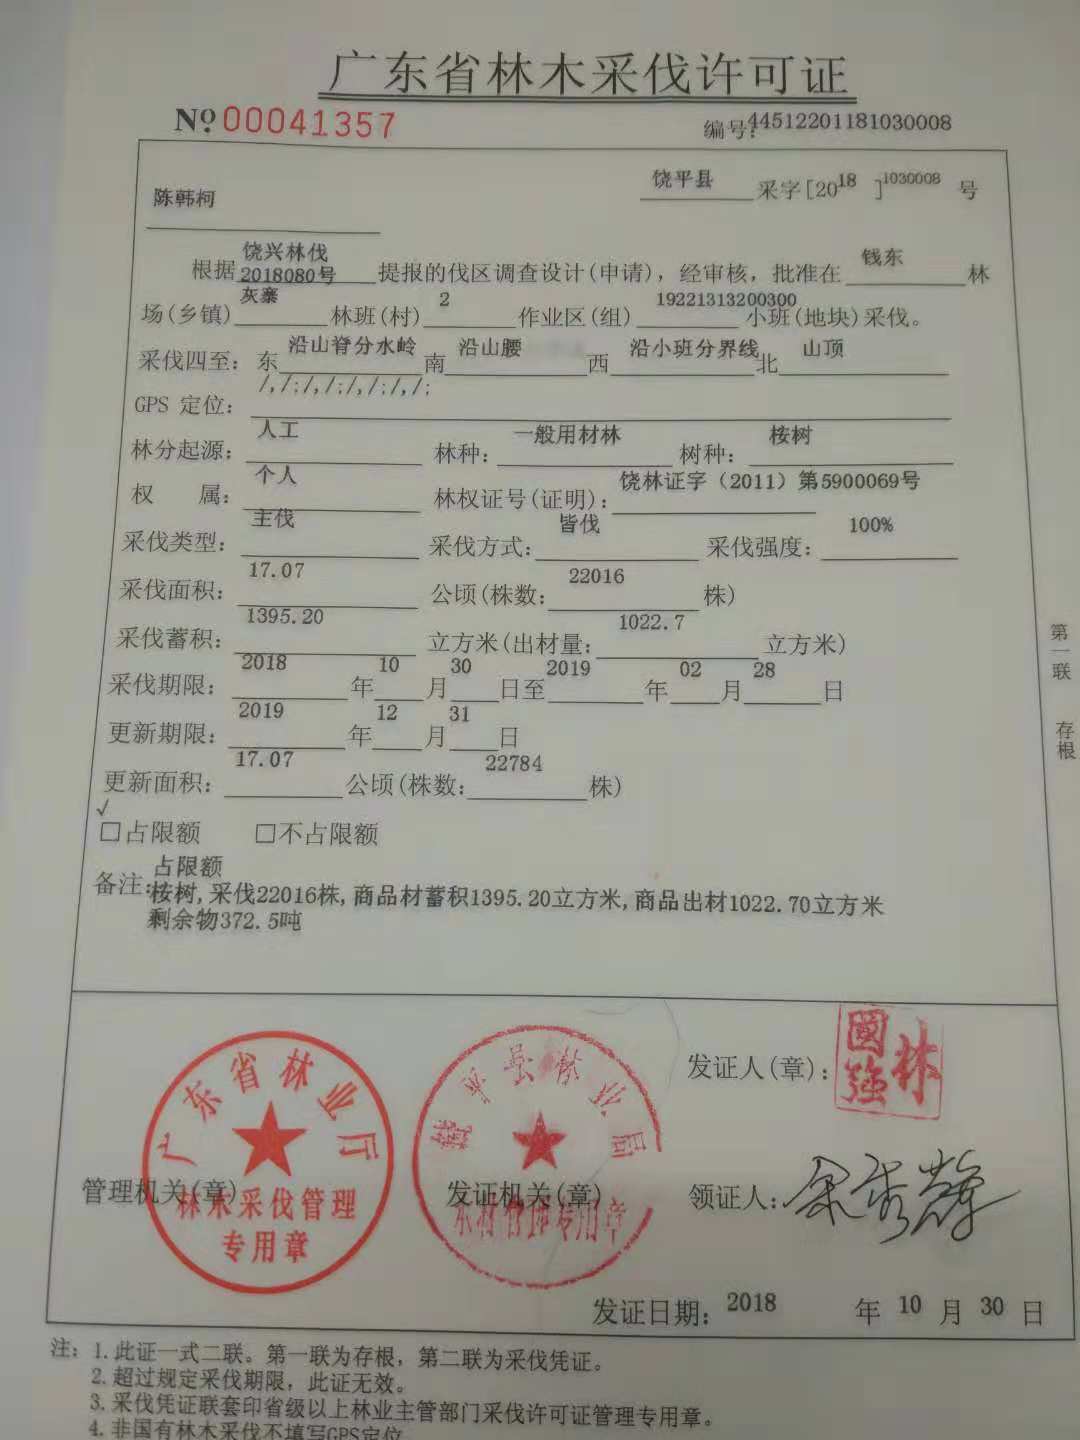 广东省林木采伐许可证
№ 00041357
编号:44512201181030008
陈韩柯
饶平县 采字[2018]1030008 号
根据饶兴林伐2018080号提报的伐区调查设计(申请)，经审核，批准在钱东林
场(乡镇)灰寨林班(村)2作业区(组)19221313200300小班(地块)采伐。
采伐四至: 东沿山脊分水岭南沿山腰西沿小班分界线北山顶
GPS 定位: /,/;/,/;/,/;/,/;
林分起源: 人工 林种: 一般用材林 树种: 桉树
权 属: 个人 林权证号(证明): 饶林证字（2011）第5900069号
采伐类型: 主伐 采伐方式: 皆伐 采伐强度: 100%
采伐面积: 17.07 公顷(株数: 22016 株)
采伐蓄积: 1395.20 立方米(出材量: 1022.7 立方米)
采伐期限: 2018 年 10 月 30 日至 2019 年 02 月 28 日
更新期限: 2019 年 12 月 31 日
更新面积: 17.07 公顷(株数: 22784 株)
√
□占限额 □不占限额
备注: 占限额
桉树,采伐22016株,商品材蓄积1395.20立方米,商品出材1022.70立方米
剩余物372.5吨
第一联 存根
广东省林业厅
林木采伐管理
专用章
管理机关(章)
饶平县林业局
发证机关(章)
发证人(章):
林國強
领证人:
发证日期: 2018 年 10 月 30 日
注: 1.此证一式二联。第一联为存根，第二联为采伐凭证。
2.超过规定采伐期限，此证无效。
3.采伐凭证联套印省级以上林业主管部门采伐许可证管理专用章。
4.非国有林木采伐不填写GPS定位